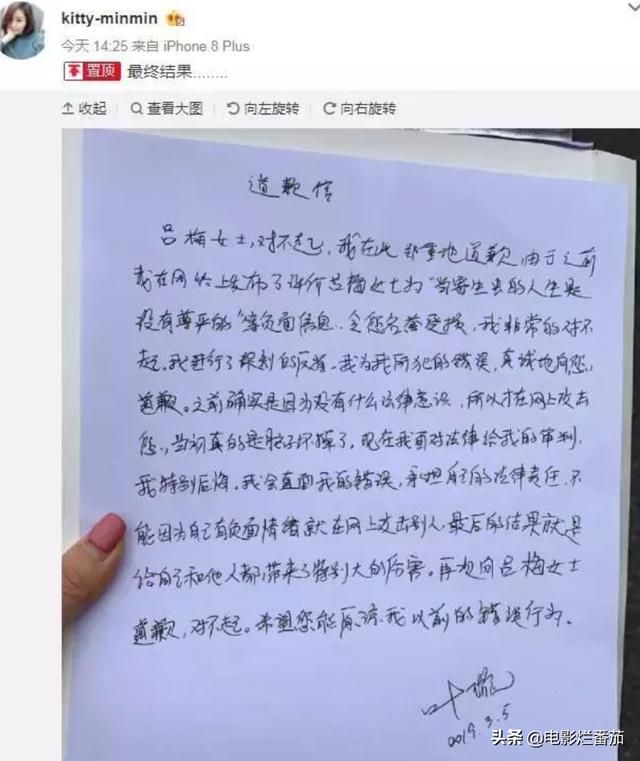 kitty-minmin
今天 14:25 来自 iPhone 8 Plus
置顶 最终结果........
收起 查看大图 向左旋转 向右旋转
道歉信
吕梅女士,对不起,我在此郑重地道歉,由于之前
我在网络上发布了评价吕梅女士为“当寄生虫的人生是
没有尊严的”等负面信息..令您名誉受损,我非常的对不
起。我进行了深刻的反省。我为我所犯的错误,真诚地向您
道歉。之前确实是因为没有什么法律意识,所以才在网上攻击
您,当初真的是脑子坏掉了,现在我面对法律给我的审判.
我特别后悔。我会直面我的错误,承担自己的法律责任.不
能因为自己有负面情绪就在网上攻击别人,最后的结果就是
给自己和他人都带来了特别大的厉害。再次向吕梅女士
道歉,对不起。希望您能原谅我以前的错误行为。
叶璇
2019.3.5
头条 @电影烂番茄